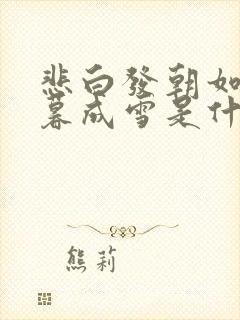 悲白發朝如
暮成雪是什
熊莉